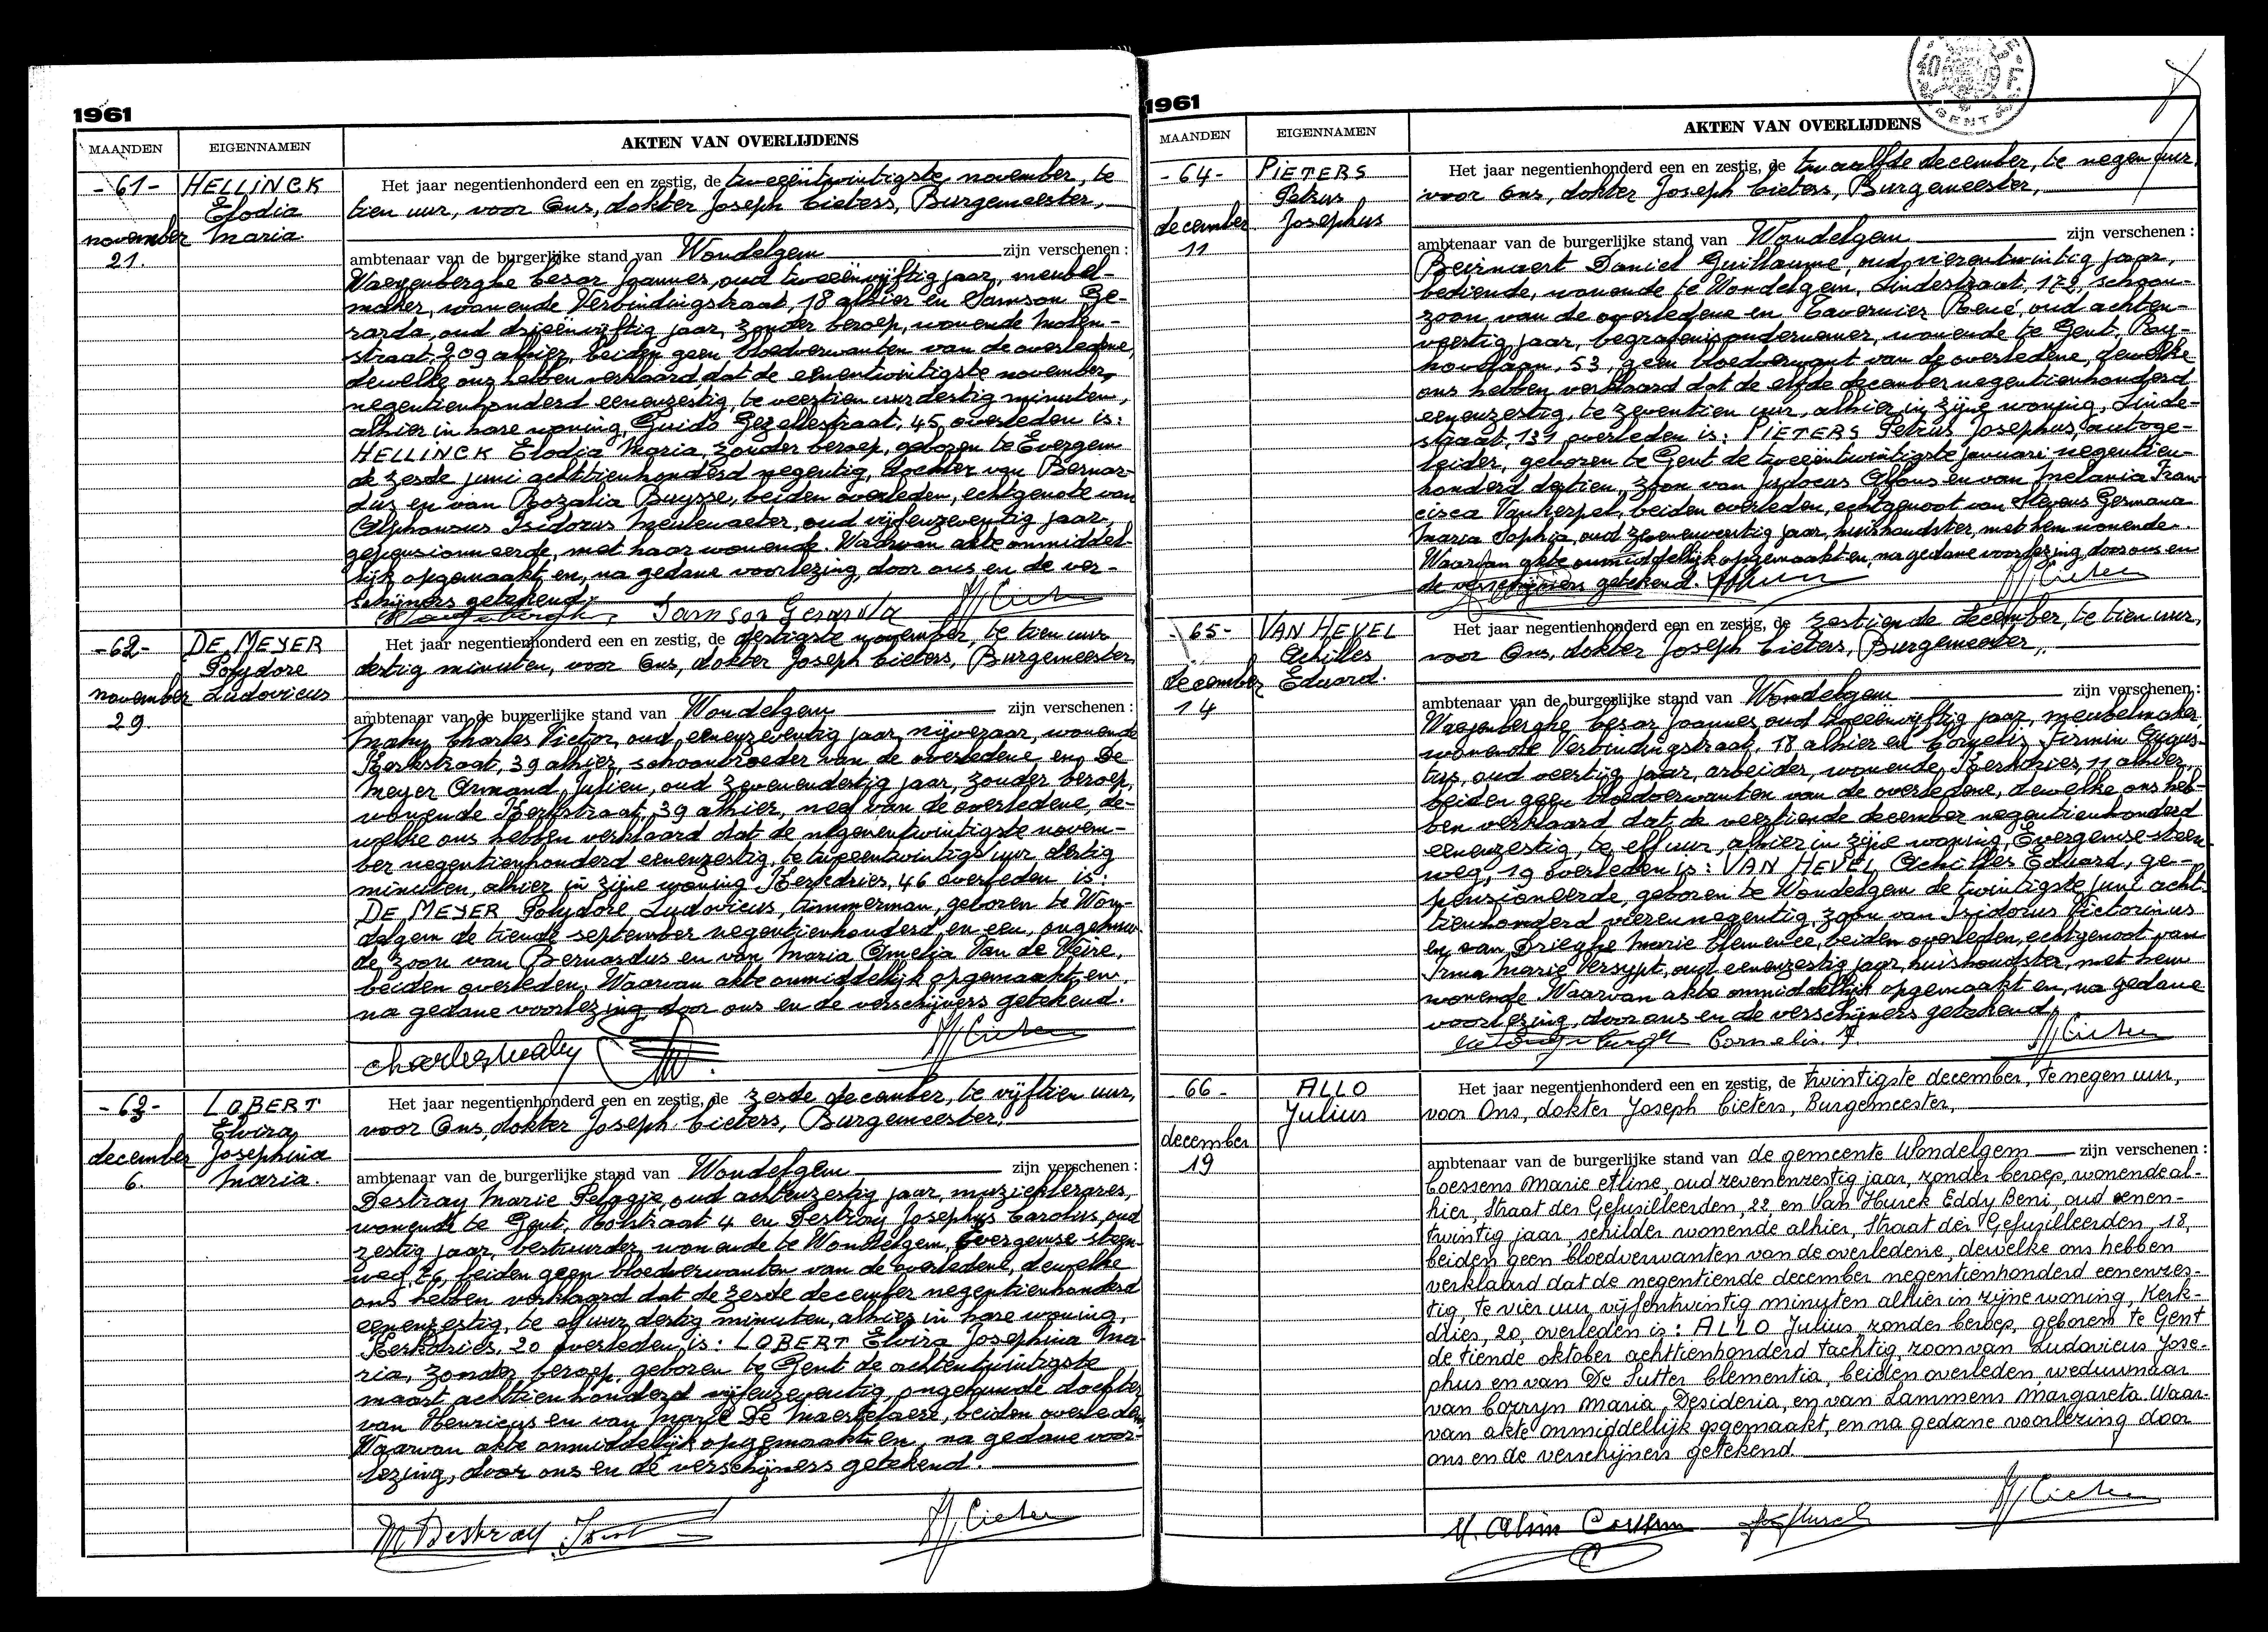 1961
MAANDEN
EIGENNAMEN
AKTEN VAN OVERLIJDENS
-61-
HELLINCK
Elodia
Maria
november
21.
Het jaar negentienhonderd een en zestig, de tweeëntwintigste november, te
tien uur, voor Ons, dokter Joseph Cieters, Burgemeester,
ambtenaar van de burgerlijke stand van Wondelgem zijn verschenen :
Waeyenberghe Cesar Joannes, oud tweeënvijftig jaar, meubel-
maker, wonende Verbindingstraat, 18 alhier en Samson Ge-
rarda, oud drieënvijftig jaar, zonder beroep, wonende Molen-
straat, 209 alhier, beiden geen bloedverwanten van de overledene,
dewelke ons hebben verklaard dat de eenentwintigste november,
negentienhonderd eenenzestig, te veertien uur dertig minuten,
alhier in hare woning, Guido Gezellestraat, 45, overleden is:
HELLINCK Elodia Maria, zonder beroep, geboren te Evergem
de zesde juni achttienhonderd negentig, dochter van Bernar-
dus en van Rozalia Buysse, beiden overleden, echtgenote van
Alphonsus Isidorus Meulewaeter, oud vijfenzeventig jaar,
gepensionneerde, met haar wonende. Waarvan akte onmiddel-
lijk opgemaakt en, na gedane voorlezing, door ons en de ver-
schijners getekend.
Samson Gerarda
-62-
DE MEYER
Polydore
Ludovicus
november
29.
Het jaar negentienhonderd een en zestig, de dertigste november, te tien uur
dertig minuten, voor Ons, dokter Joseph Cieters, Burgemeester
ambtenaar van de burgerlijke stand van Wondelgem zijn verschenen :
Mahy Charles Victor, oud eenenzeventig jaar, nijveraar, wonende
Kerkstraat, 39 alhier, schoonbroeder van de overledene en De
Meyer Armand Julien, oud zevenendertig jaar, zonder beroep,
wonende Kerkstraat, 39 alhier, neef van de overledene, de-
welke ons hebben verklaard dat de negenentwintigste novem-
ber negentienhonderd eenenzestig, te tweeentwintig uur dertig
minuten, alhier in zijne woning Kerkdries, 46 overleden is:
DE MEYER Polydore Ludovicus, timmerman, geboren te Won-
delgem de tiende september negentienhonderd en een, ongehuw-
de zoon van Bernardus en van Maria Amelia Van de Veire,
beiden overleden. Waarvan akte onmiddellijk opgemaakt en,
na gedane voorlezing, door ons en de verschijners getekend.
Charles Mahy
-63-
LOBERT
Elvira
Josephina
Maria.
december
6.
Het jaar negentienhonderd een en zestig, de zesde december, te vijftien uur,
voor Ons, dokter Joseph Cieters, Burgemeester,
ambtenaar van de burgerlijke stand van Wondelgem zijn verschenen :
Destray Marie Pelagie, oud achtenzestig jaar, muzieklerares,
wonende te Gent, Holstraat 4 en Destray Josephus Carolus, oud
zestig jaar, bestuurder, wonende te Wondelgem, Evergemse steen-
weg, 26, beiden geen bloedverwanten van de overledene, dewelke
ons hebben verklaard dat de zesde december negentienhonderd
eenenzestig, te elf uur dertig minuten, alhier in hare woning,
Kerkdries, 20 overleden is: LOBERT Elvira Josephina Ma-
ria, zonder beroep, geboren te Gent de achtentwintigste
maart achttienhonderd vijfenzeventig, ongehuwde dochter
van Henricus en van Marie De Maertelaere, beiden overleden.
Waarvan akte onmiddellijk opgemaakt en, na gedane voor-
lezing, door ons en de verschijners getekend.
M Destray
1961
MAANDEN
EIGENNAMEN
AKTEN VAN OVERLIJDENS
GENT
-64-
PIETERS
Petrus
Josephus
december
11
Het jaar negentienhonderd een en zestig, de twaalfde december, te negen uur,
voor Ons, dokter Joseph Cieters, Burgemeester,
ambtenaar van de burgerlijke stand van Wondelgem zijn verschenen :
Beirnaert Daniel Guillaume, oud vierentwintig jaar,
bediende, wonende te Wondelgem, Lindestraat, 172, schoon-
zoon van de overledene en Tavernier René, oud achten-
veertig jaar, begrafenisondernemer, wonende te Gent, Roy-
hovelaan, 53, geen bloedverwant van de overledene, dewelke
ons hebben verklaard dat de elfde december negentienhonderd
eenenzestig, te zeventien uur, alhier in zijne woning, Linde-
straat, 131, overleden is: PIETERS Petrus Josephus, autoge-
leider, geboren te Gent de tweeëntwintigste januari negentien-
honderd dertien, zoon van Judocus Alfons en van Melania Fran-
cisca Vankerpel, beiden overleden, echtgenoot van Stevens Germana
Maria Sophia, oud zevenenveertig jaar, huishoudster, met hem wonende.
Waarvan akte onmiddellijk opgemaakt en, na gedane voorlezing, door ons en
de verschijners getekend.
-65-
VAN HEVEL
Achilles
Eduard.
december
14
Het jaar negentienhonderd een en zestig, de zestiende december, te tien uur,
voor Ons, dokter Joseph Cieters, Burgemeester,
ambtenaar van de burgerlijke stand van Wondelgem zijn verschenen :
Waeyenberghe Cesar Joannes, oud tweeënvijftig jaar, meubelmaker
wonende Verbindingstraat, 18 alhier en Cornelis Firmin Augus-
tus, oud veertig jaar, arbeider, wonende Kerkdries, 11 alhier,
beiden geen bloedverwanten van de overledene, dewelke ons heb-
ben verklaard dat de veertiende december negentienhonderd
eenenzestig, te elf uur, alhier in zijne woning, Evergemse steen-
weg, 19 overleden is: VAN HEVEL Achilles Eduard, ge-
pensioneerde, geboren te Wondelgem de twintigste juni acht-
tienhonderd vierennegentig, zoon van Isidorus Victorinus
en van Drieghe Marie Clemence, beiden overleden, echtgenoot van
Irma Marie Versypt, oud eenenzestig jaar, huishoudster, met hem
wonende. Waarvan akte onmiddellijk opgemaakt en, na gedane
voorlezing, door ons en de verschijners getekend.
Cornelis. F.
-66-
ALLO
Julius
december
19
Het jaar negentienhonderd een en zestig, de twintigste december, te negen uur,
voor Ons, dokter Joseph Cieters, Burgemeester,
ambtenaar van de burgerlijke stand van de gemeente Wondelgem zijn verschenen :
Coessens Marie Aline, oud zevenenzestig jaar, zonder beroep, wonende al-
hier, Straat der Gefusilleerden, 22, en Van Hurck Eddy Beni, oud eenen-
twintig jaar, schilder wonende alhier, Straat der Gefusilleerden, 18,
beiden geen bloedverwanten van de overledene, dewelke ons hebben
verklaard dat de negentiende december negentienhonderd eenenzes-
tig, te vier uur vijfentwintig minuten alhier in zijne woning, Kerk-
dries, 20, overleden is: ALLO Julius zonder beroep, geboren te Gent
de tiende oktober achttienhonderd tachtig, zoon van Ludovicus Jose-
phus en van De Sutter Clementia, beiden overleden, weduwnaar
van Corryn Maria Desideria, en van Lammens Margareta. Waar-
van akte onmiddellijk opgemaakt, en na gedane voorlezing door
ons en de verschijners getekend.
M. Aline Coessens